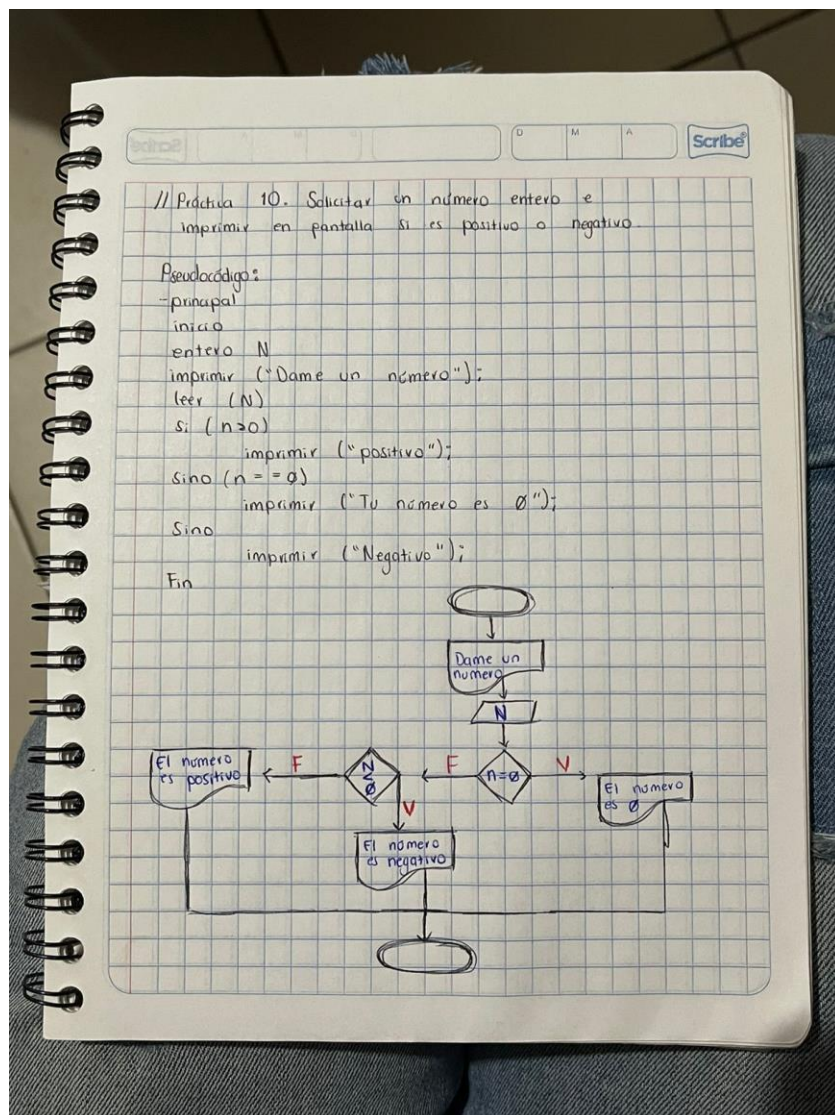 D M A
Scribe
// Práctica 10. Solicitar un número entero e
imprimir en pantalla si es positivo o negativo.
Pseudocódigo:
-principal
inicio
entero N
imprimir ("Dame un número");
leer (N)
si (n>0)
imprimir ("positivo");
Sino (n==0)
imprimir ("Tu número es 0");
Sino
imprimir ("Negativo");
Fin
Dame un
numero
N
El número
es positivo
F
N<0
F
n=0
V
El número
es 0
V
El número
es negativo